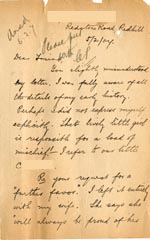 Redstone Road, Redhill
5/2/29.
Dear
You slightly misunderstood
my letter. I was fully aware of all
the details of my early history.
Perhaps I did not express myself
explicitly. That lively little girl
is responsible for a load of
mischief! I refer to our little
C
Re your request for a
"further favor" I left it entirely
with my wife. She says she
will always be proud of his